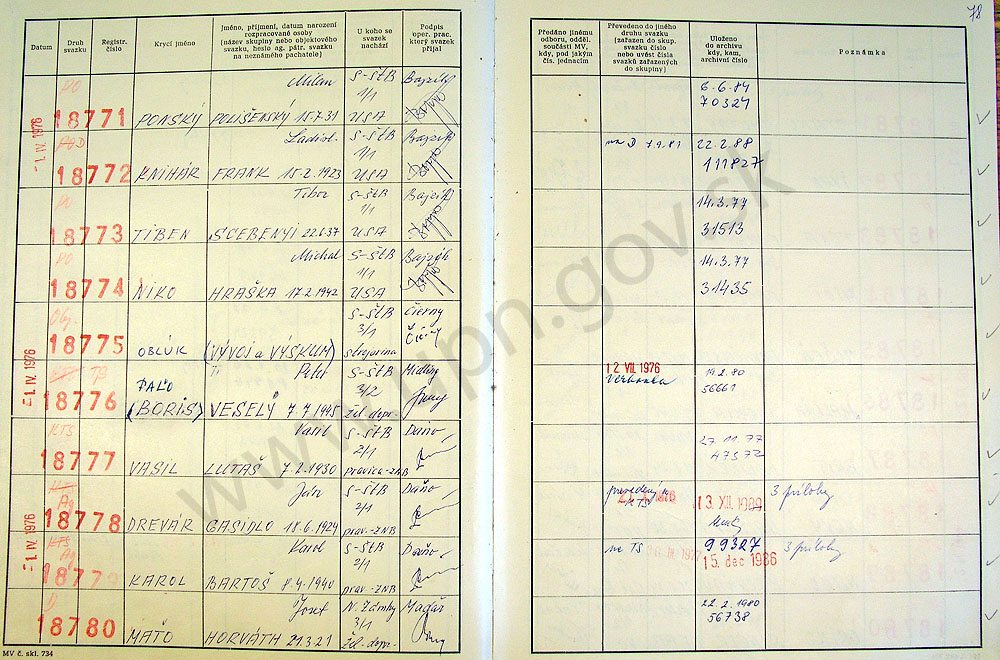 78
Datum
Druh svazku
Registr. číslo
Krycí jméno
Jméno, příjmení, datum narození
rozpracované osoby
(název skupiny nebo objektového
svazku, heslo ag. pátr. svazku
na neznámého pachatele)
U koho se
svazek
nachází
Podpis
oper. prac.
který svazek
přijal
Předáno jinému
odboru, odděl.
součásti MV,
kdy, pod jakým
čís. jednacím
Převedeno do jiného
druhu svazku
(zařazen do skup.
svazku číslo
nebo uvést čísla
svazků zařazených
do skupiny)
Uloženo
do archivu
kdy, kam,
archivní číslo
Poznámka
PO Milan S-ŠtB 6.6.84
1/1 70324
-1. IV. 1976 18771 PONSKÝ POLIŠENSKÝ 15.7.31 USA
Ladisl. S-ŠtB 22.2.88
1/1 111827
18772 KNIHÁR FRANK 15.2.1923 USA
PO Tibor S-ŠtB 14.3.77
1/1 31513
18773 TIBEN SCEBENYI 22.6.37 USA
PO Michal S-ŠtB 14.3.77
1/1 31435
18774 NIKO HRAŠKA 17.2.1942 USA
Obj. S-ŠtB Čierny
3/1
18775 OBLÚK (VÝVOJ a VÝSKUM) strojarina
-1. IV. 1976 TS PAĽO Peter S-ŠtB 12. VII. 1976 19.2.80
3/2 56661
18776 (BORIS) VESELÝ 7.7.1945 žel. dopr.
KTS Vasil S-ŠtB Daňo 27.11.77
2/1 47572
18777 VASIL LUTAŠ 7.2.1930 pravica-ZNB
Ag Ján S-ŠtB Daňo prevedený 13. XII. 1989 3 prílohy
2/1
-1. IV. 1976 18778 DREVÁR GASIDLO 18.6.1924 prav-ZNB
KTS Ag Karol S-ŠtB Daňo na TS 99327 3 prílohy
2/1 15. dec 1986
18779 KAROL BARTOŠ 8.4.1940 prav-ZNB
Jozef N. Zámky Magár 22.2.1980
3/1 56738
18780 MAŤO HORVÁTH 21.3.21 žel. dopr.
MV č. skl. 734
www.upn.gov.sk